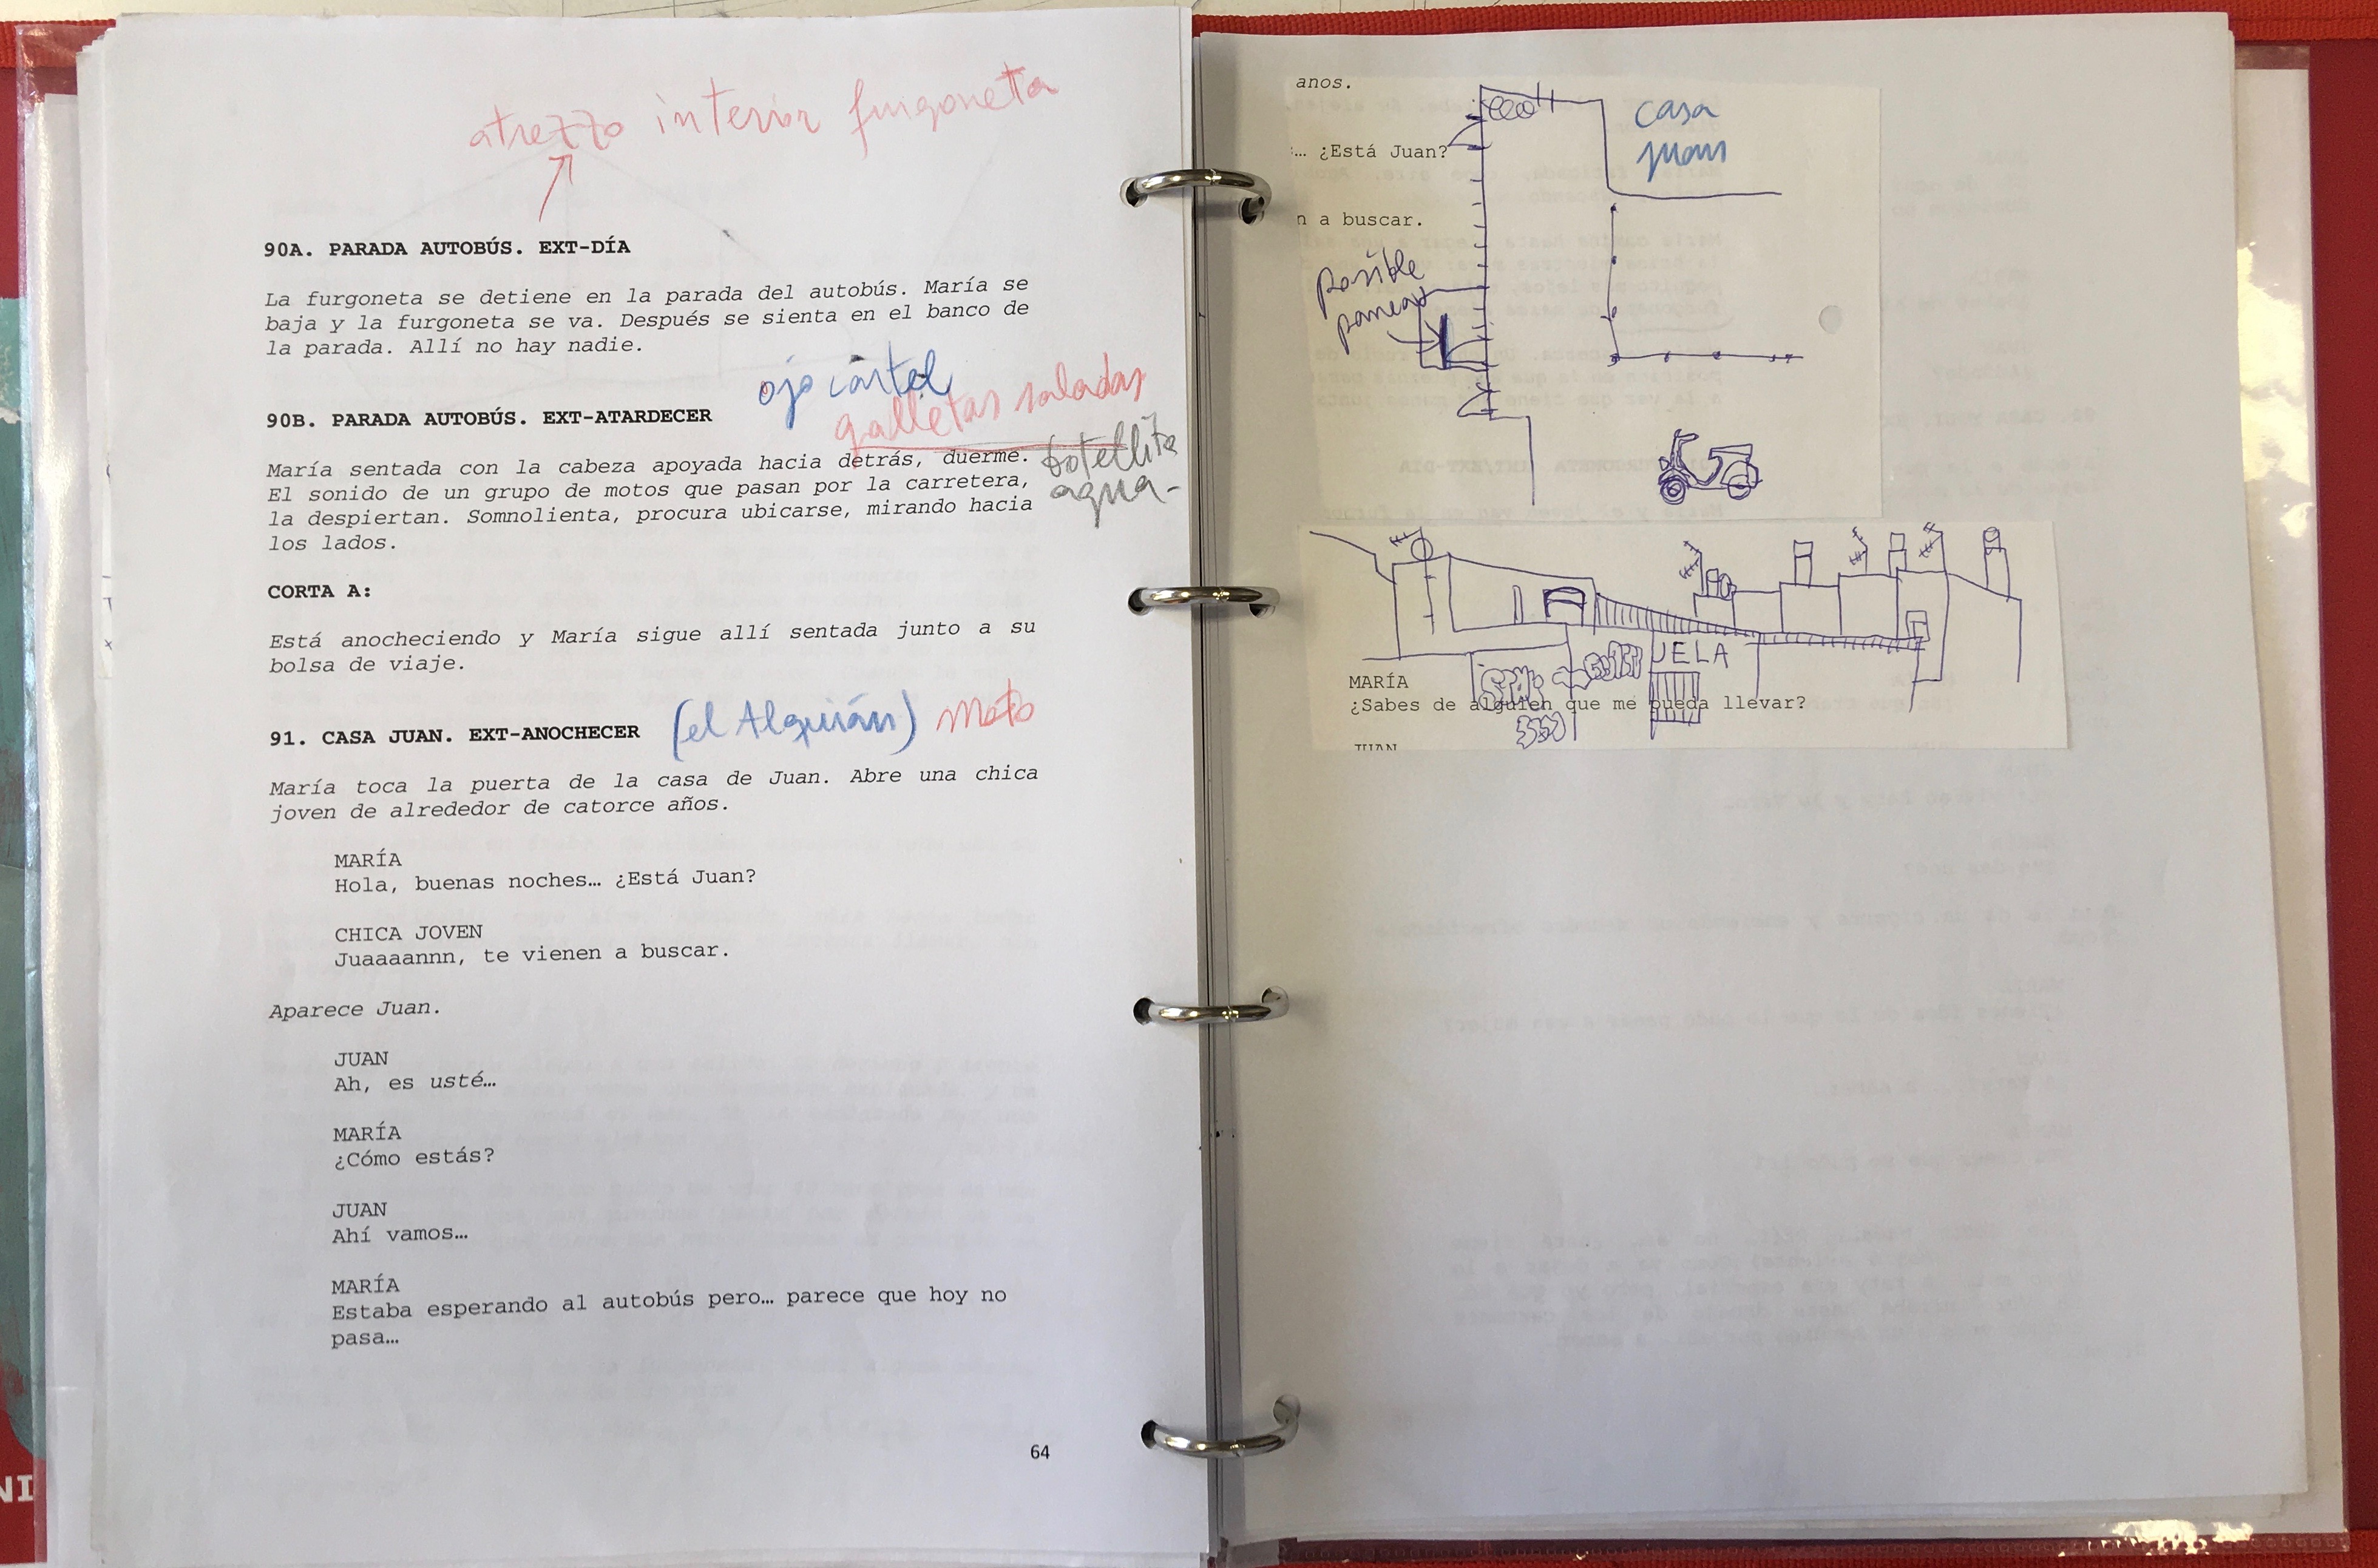 atrezzo interior furgoneta
90A. PARADA AUTOBÚS. EXT-DÍA
La furgoneta se detiene en la parada del autobús. María se
baja y la furgoneta se va. Después se sienta en el banco de
la parada. Allí no hay nadie.
ojo cartel
galletas saladas
90B. PARADA AUTOBÚS. EXT-ATARDECER
botellita
agua-
María sentada con la cabeza apoyada hacia detrás, duerme.
El sonido de un grupo de motos que pasan por la carretera,
la despiertan. Somnolienta, procura ubicarse, mirando hacia
los lados.
CORTA A:
Está anocheciendo y María sigue allí sentada junto a su
bolsa de viaje.
91. CASA JUAN. EXT-ANOCHECER (el Alquián) moto
María toca la puerta de la casa de Juan. Abre una chica
joven de alrededor de catorce años.
MARÍA
Hola, buenas noches… ¿Está Juan?
CHICA JOVEN
Juaaaannn, te vienen a buscar.
Aparece Juan.
JUAN
Ah, es usté…
MARÍA
¿Cómo estás?
JUAN
Ahí vamos…
MARÍA
Estaba esperando al autobús pero… parece que hoy no
pasa…
64
anos.
… ¿Está Juan?
n a buscar.
casa
juan
posible
UELA
MARÍA
¿Sabes de alguien que me pueda llevar?
JUAN
NI